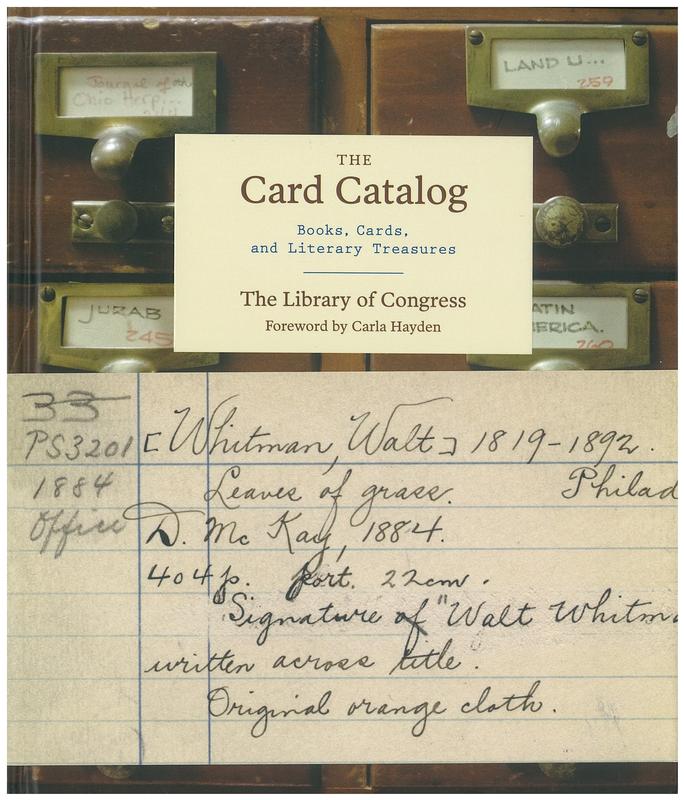 Journal of th
Ohio Herp...
LAND U...
259
THE
Card Catalog
Books, Cards,
and Literary Treasures
The Library of Congress
Foreword by Carla Hayden
JURAB
245
ATIN
ERICA.
260
33
PS3201 [Whitman, Walt] 1819-1892.
1884 Leaves of grass. Philad
Office D. McKay, 1884.
404 p. port. 22cm.
Signature of "Walt Whitm
written across title.
Original orange cloth.